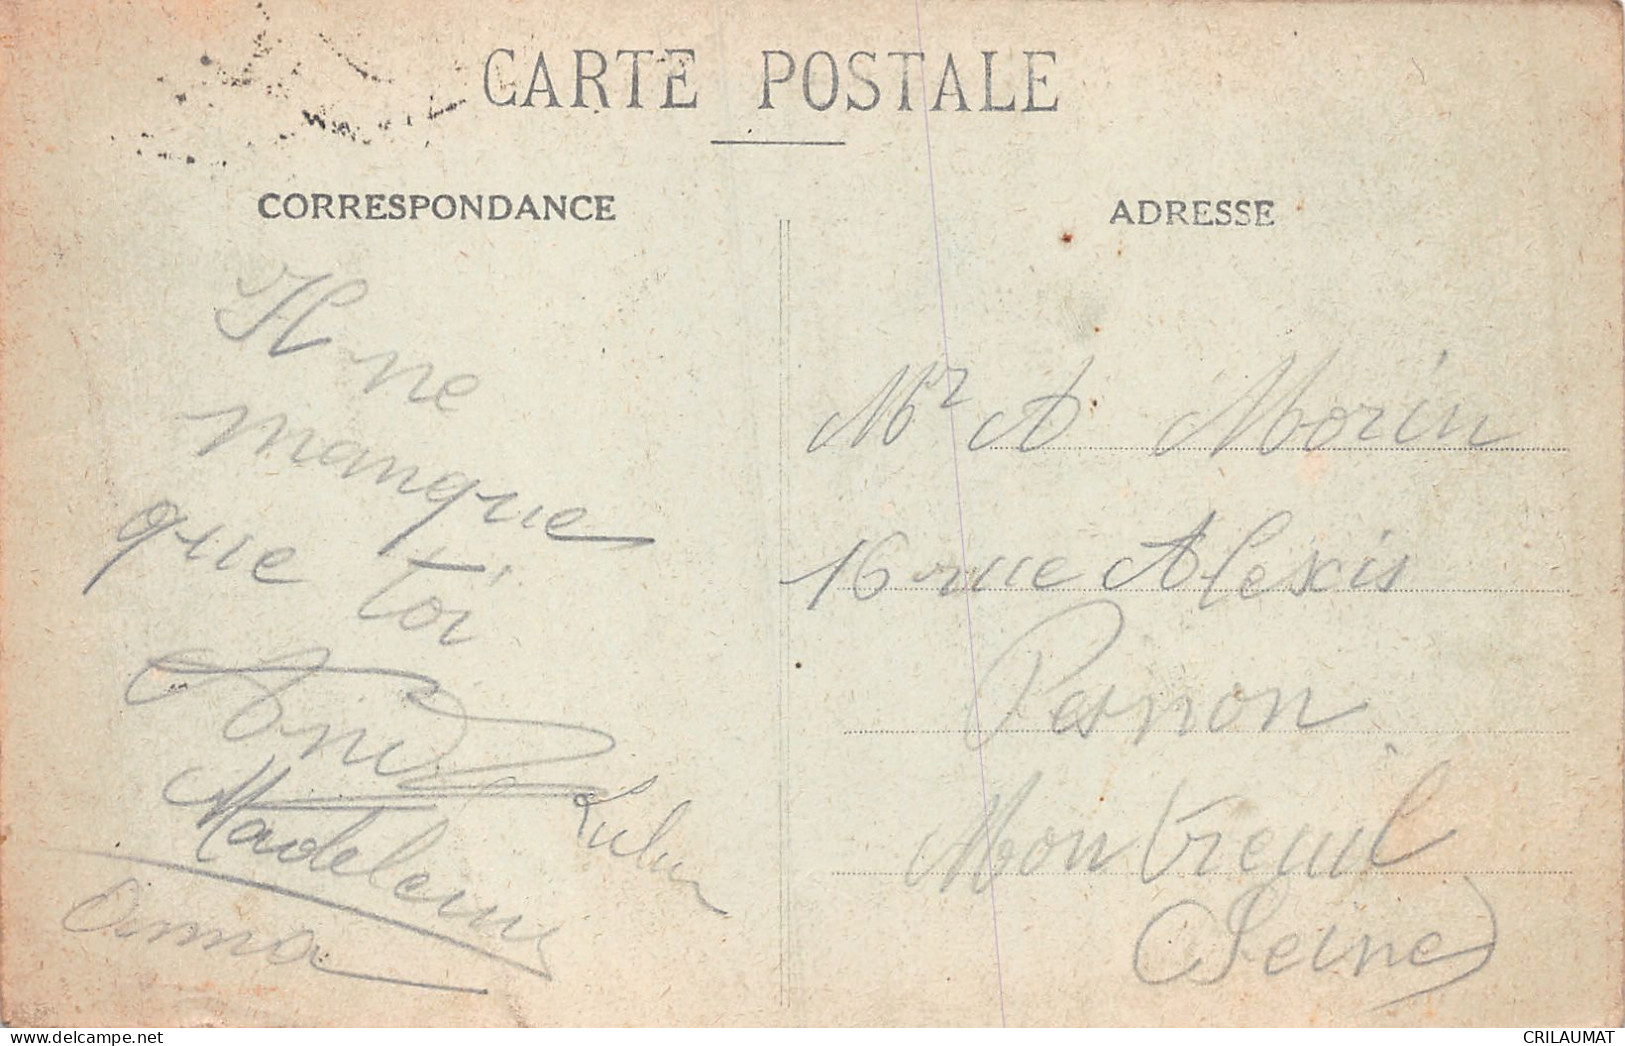 CARTE POSTALE
CORRESPONDANCE
ADRESSE
Il ne
manque
que toi
Madeleine
Lulu
Anna
Mr A Morin
16 rue Alexis
Pesnon
Montreuil
(Seine)
delcampe.net
CRILAUMAT